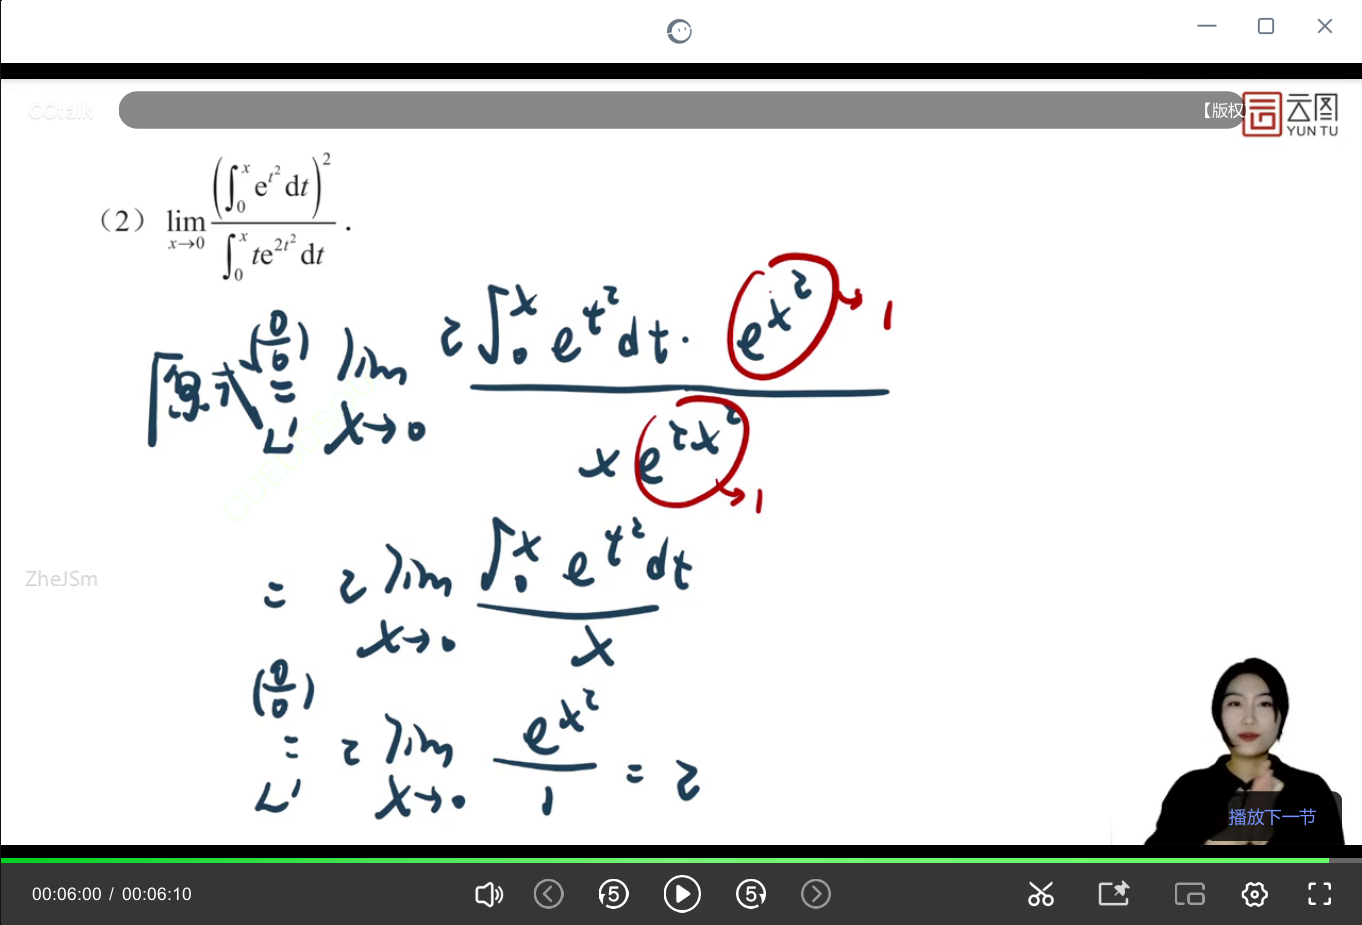 CCtalk
【版权
云图
YUN TU
（2） lim_{x→0} (∫_0^x e^{t^2} dt)^2 / ∫_0^x te^{2t^2} dt .
原式 (0/0) = L' lim_{x→0} 2∫_0^x e^{t^2} dt · e^{x^2} / x e^{2x^2}
→ 1
→ 1
= 2 lim_{x→0} ∫_0^x e^{t^2} dt / x
ZheJSm
(0/0) = L' 2 lim_{x→0} e^{x^2} / 1 = 2
播放下一节
00:06:00 / 00:06:10
5
5